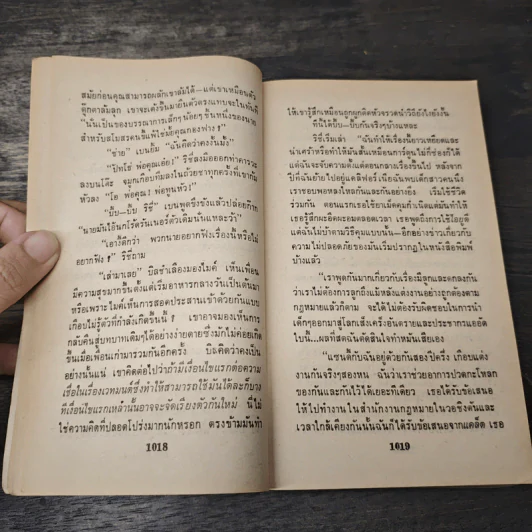 สมัยก่อนคุณสามารถผลักเขาล้มได้—แต่เขาเหมือนตัว
ตุ๊กตาล้มลุก เขาจะเด้งขึ้นมายืนตัวตรงแทบจะในทันที
"นั่นเป็นของบรรณาการเล็กๆ น้อยๆ ชิ้นหนึ่งของนาย
สำหรับสโมสรคนขี้แพ้ใช่มั้ยคุณกองฟาง ?"
"ช่าย" เบนยิ้ม "ฉันคิดว่าคงงั้นมั้ง"
"ปิ๊ทโธ่ พ่อคุณเอ๋ย!" ริชี่ลงมือออกท่าคารวะ
ลงบนโต๊ะ จมูกเกือบทิ่มลงในถ้วยชาทุกครั้งที่เขาก้ม
หัวลง "โอ พ่อคุณ! พ่อทูนหัว!"
"บี๊บ—บี๊บ ริชี่" เบนพูดขึงขังแล้วปล่อยก๊าก
"นายมันไอ้นกโร้ดรันเนอร์ตัวเดิมนั่นแหละว้า"
"เอางี้ดีกว่า พวกนายอยากฟังเรื่องนี้หรือไม่
อยากฟัง ?" ริชี่ถาม
"เล่ามาเลย" บิลชำเลืองมองไมค์ เห็นเพื่อน
มีความสุขมากขึ้นตั้งแต่เริ่มอาหารกลางวันเป็นต้นมา
หรือเพราะไมค์เห็นการสอดประสานเข้าด้วยกันแบบ
เกือบไม่รู้ตัวที่กำลังเกิดขึ้นนี้ ? เขาอาจมองเห็นการ
กลับคืนสู่บทบาทเดิมๆ ได้อย่างง่ายดาย ซึ่งมักไม่ค่อยเกิด
ขึ้นเมื่อเพื่อนเก่ามารวมกันอีกครั้ง บิลคิดว่าคงเป็น
อย่างนั้นแน่ เขาคิดต่อไปว่าถ้ามีเงื่อนไขแรกต่อความ
เชื่อในเรื่องเวทมนต์ซึ่งทำให้สามารถใช้มันได้ละก็บาง
ทีเงื่อนไขแรกเหล่านั้นอาจจะจัดเรียงตัวกันใหม่ นี่ไม่
ใช่ความคิดที่ปลอดโปร่งมากนักหรอก ตรงข้ามมันทำ
1018
ให้เขารู้สึกเหมือนถูกผูกติดหัวจรวดนำวิถียังไงยังงั้น
ทีนี้ได้บี๊บ—บี๊บกันจริงๆบ้างแหละ
ริชี่เริ่มเล่า "ฉันทำให้เรื่องนี้ยาวเหยียดและ
น่าเศร้าหรือทำให้มันสั้นเหมือนการ์ตูนไม่กี่ช่องก็ได้
แต่ฉันจะจับความตั้งแต่ตอนกลางเรื่องขึ้นไป หลังจาก
ปีที่ฉันย้ายไปอยู่แคลิฟอร์เนียฉันพบเด็กสาวคนนึง
เราชอบพอหลงใหลกันและกันอย่างยิ่ง เริ่มใช้ชีวิต
ร่วมกัน ตอนแรกเธอใช้ยาเม็ดคุมกำเนิดแต่มันทำให้
เธอรู้สึกผะอืดผะอมตลอดเวลา เธอพูดถึงการใช้ไอยูดี
แต่ฉันไม่บ้าตามวิธีคุมแบบนั้น—อีกอย่างข่าวเกี่ยวกับ
ความไม่ปลอดภัยของมันเริ่มปรากฏในหนังสือพิมพ์
บ้างแล้ว
"เราพูดกันมากเกี่ยวกับเรื่องมีลูกและตกลงกัน
ว่าเราไม่ต้องการลูกถึงแม้หลังแต่งงานอย่างถูกต้องตาม
กฎหมายแล้วก็ตาม จะได้ไม่ต้องรับผิดชอบในการนำ
เด็กๆออกมาสู่โลกเส็งเคร็งอันตรายและประชากรแออัด
ใบนี้...ผลที่สุดฉันตัดสินใจทำหมันเสียเอง
"แซนดี้กับฉันอยู่ด้วยกันสองปีครึ่ง เกือบแต่ง
งานกันจริงๆสองหน ฉันว่าเราช่วยอาการปวดกะโหลก
ของกันและกันไว้ได้เยอะทีเดียว เธอได้รับข้อเสนอ
ให้ไปทำงานในสำนักงานกฎหมายในวอชิงตันและ
เวลาใกล้เคียงกันนั้นฉันก็ได้รับข้อเสนอจากแคล็ด เธอ
1019